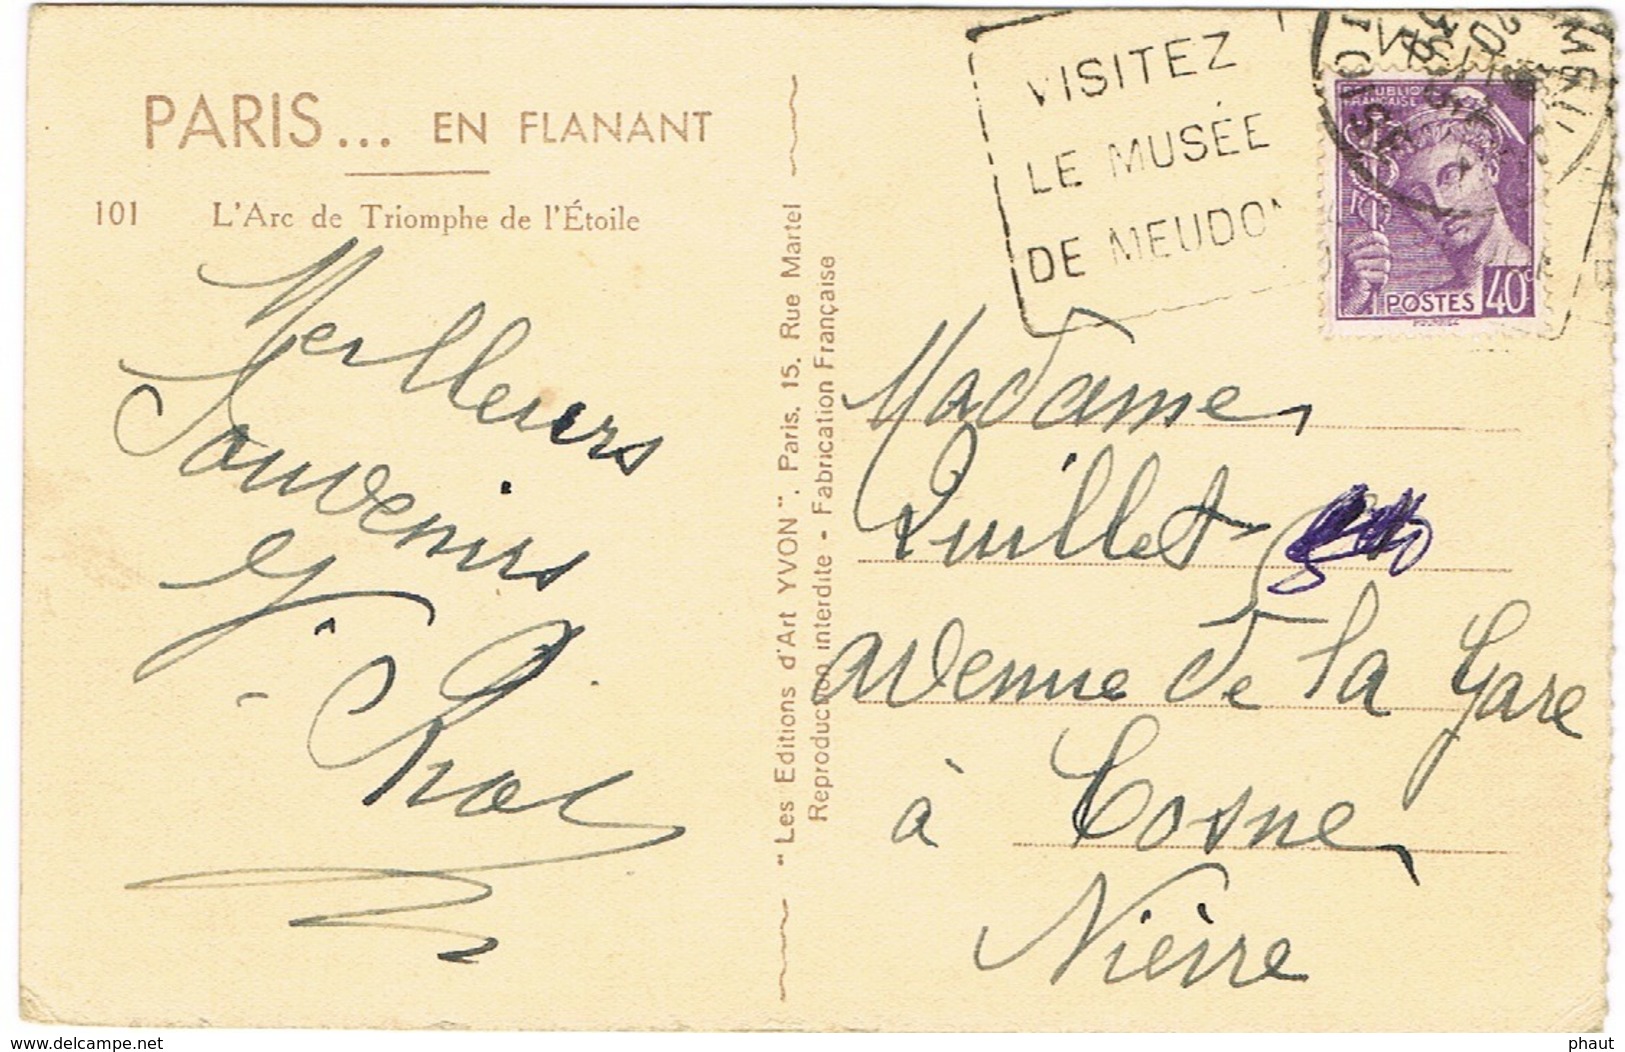 PARIS... EN FLANANT
101 L'Arc de Triomphe de l'Étoile
Meilleurs
Souvenirs
"Les Editions d'Art YVON". Paris. 15, Rue Martel
Reproduction interdite - Fabrication Française
VISITEZ
LE MUSÉE
DE MEUDON
REPUBLIQUE
FRANÇAISE
POSTES 40c
Madame
Quillet
avenue de la Gare
à Cosne
Nièvre
delcampe.net
phaut